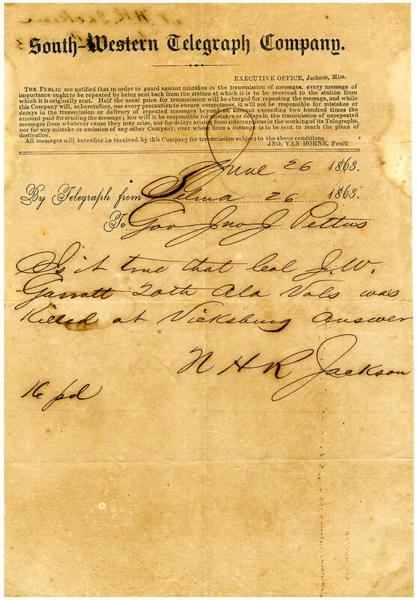 South-Western Telegraph Company.
EXECUTIVE OFFICE, Jackson, Miss.
THE PUBLIC are notified that in order to guard against mistakes in the transmission of messages, every message of
importance ought to be repeated by being sent back from the station at which it is to be received to the station from
which it is originally sent. Half the usual price for transmission will be charged for repeating the message, and while
this Company will, as heretofore, use every precaution to ensure correctness, it will not be responsible for mistakes or
delays in the transmission or delivery of repeated messages beyond an amount exceeding two hundred times the
amount paid for sending the message; nor will it be responsible for mistakes or delays in the transmission of unrepeated
messages from whatever cause they may arise, nor for delays arising from interruptions in the working of its Telegraphs,
nor for any mistake or omission of any other Company, over whose lines a message is to be sent to reach the place of
destination.
All messages will hereafter be received by this Company for transmission subject to the above conditions.
JNO. VAN HORNE, Pres't.
June 26 1863.
By Telegraph from Selma 26 1863.
To Gov Jno J Pettus
Is it true that Col J. W.
Garratt 20th Ala Vols was
killed at Vicksburg answer
N H R Jackson
16 pd